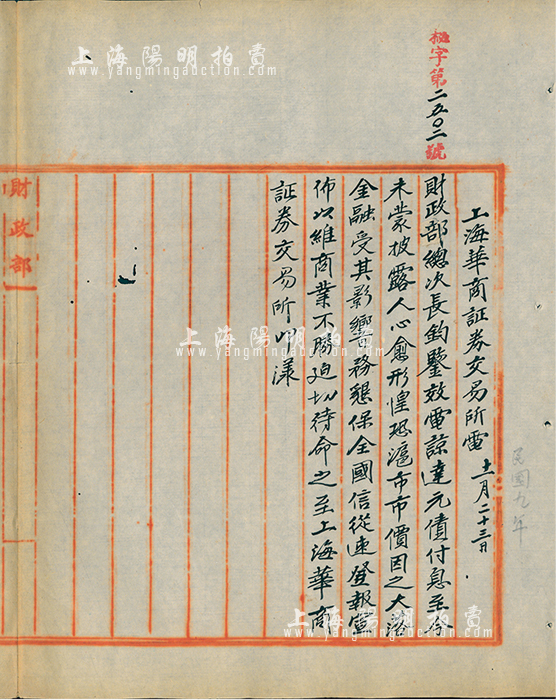 秘字第二五〇二號
上海華商証券交易所電 十一月二十三日
民國九年
財政部總次長鈞鑒效電諒達元債付息至今
未蒙披露人心愈形惶恐滬市市價因之大落
金融受其影響務懇保全國信從速登報宣
佈以維商業不勝迫切待命之至上海華商
証券交易所叩漾
財政部
上海陽明拍賣
www.yangmingauction.com
上海陽明拍賣
www.yangmingauction.com
上海陽明拍賣
www.yangmingauction.com